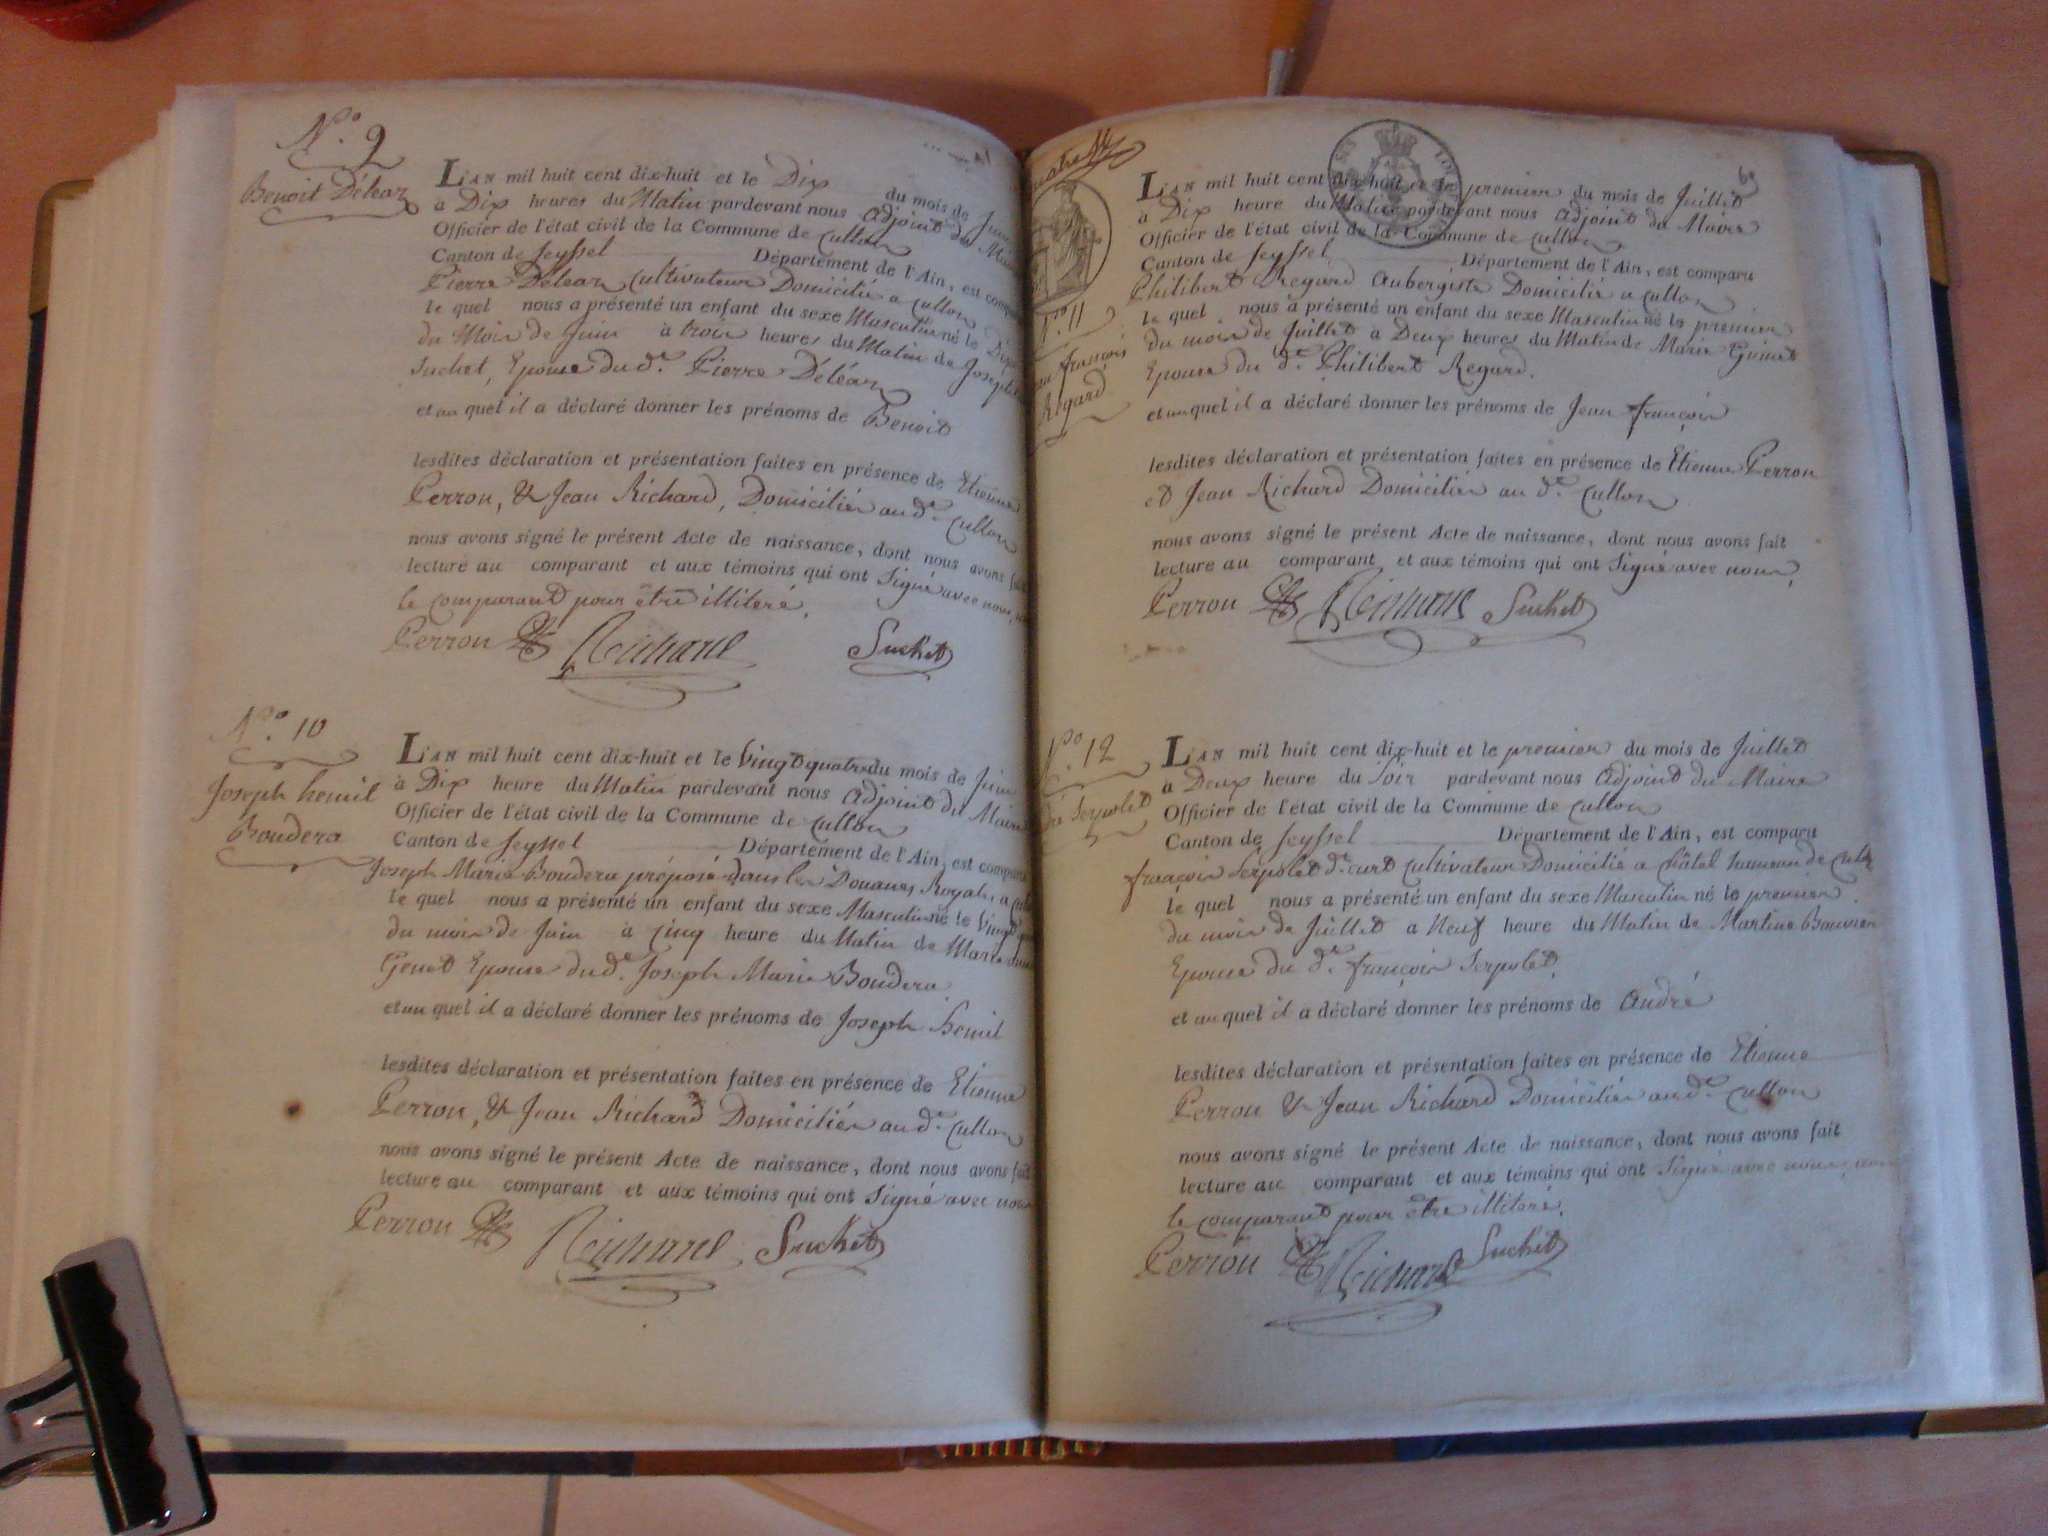 N.o 9
Benoit Déléaz
L'AN mil huit cent dix-huit et le Dix du mois de Juin
à Dix heures du Matin pardevant nous adjoint du Maire
Officier de l'état civil de la Commune de Cullon
Canton de Seyssel Département de l'Ain, est comparu
Pierre Déléaz Cultivateur Domicilié a Cullon
le quel nous a présenté un enfant du sexe Masculin né le Dix
du Mois de Juin à trois heures du Matin de Joseph
Suchet, Epouse du d.t Pierre Déléaz
et au quel il a déclaré donner les prénoms de Benoit
lesdites déclaration et présentation faites en présence de Etienne
Perron, & Jean Richard, Domiciliés au d.t Cullon
nous avons signé le présent Acte de naissance, dont nous avons fait
lecture au comparant et aux témoins qui ont Signé avec nous,
le comparant pour être illiteré.
Perron Richard Suchet
N.o 10
Joseph hemil
Boudera
L'AN mil huit cent dix-huit et le Vingt quatre du mois de Juin
à Dix heure du Matin pardevant nous adjoint du Maire
Officier de l'état civil de la Commune de Cullon
Canton de Seyssel Département de l'Ain, est comparu
Joseph Marie Boudera préposé dans les Douanes Royale, a
le quel nous a présenté un enfant du sexe Masculin né le Vingt
du mois de Juin à Cinq heure du Matin de Marie
Genet Epouse du d.t Joseph Marie Boudera
et au quel il a déclaré donner les prénoms de Joseph hemil
lesdites déclaration et présentation faites en présence de Etienne
Perron, & Jean Richard Domiciliés au d.t Cullon
nous avons signé le présent Acte de naissance, dont nous avons fait
lecture au comparant et aux témoins qui ont Signé avec nous
Perron Richard Suchet
N.o 11
françois
Regard
L'AN mil huit cent dix-huit et le premier du mois de Juillet
à Dix heure du Matin pardevant nous adjoint du Maire
Officier de l'état civil de la Commune de Cullon
Canton de Seyssel Département de l'Ain, est comparu
Philibert Regard Aubergiste Domicilié a Cullon
le quel nous a présenté un enfant du sexe Masculin né le premier
du mois de Juillet a Deux heures du Matin de Marie Grinet
Epouse du d.t Philibert Regard.
et au quel il a déclaré donner les prénoms de Jean françois
lesdites déclaration et présentation faites en présence de Etienne Perron
et Jean Richard Domiciliés au d.t Cullon
nous avons signé le présent Acte de naissance, dont nous avons fait
lecture au comparant et aux témoins qui ont Signé avec nous,
Perron Richard Suchet
N.o 12
Serpolet
L'AN mil huit cent dix-huit et le premier du mois de Juillet
à Deux heure du Soir pardevant nous adjoint du Maire
Officier de l'état civil de la Commune de Cullon
Canton de Seyssel Département de l'Ain, est comparu
françois Serpolet d.t curt cultivateur Domicilié a Châtel hameau de
le quel nous a présenté un enfant du sexe Masculin né le premier
du mois de Juillet a Neuf heure du Matin de Martine Bouvier
Epouse du d.t françois Serpolet
et au quel il a déclaré donner les prénoms de André
lesdites déclaration et présentation faites en présence de Etienne
Perron & Jean Richard Domiciliés au d.t Cullon
nous avons signé le présent Acte de naissance, dont nous avons fait
lecture au comparant et aux témoins qui ont Signé avec nous,
le comparant pour être illiteré.
Perron Richard Suchet